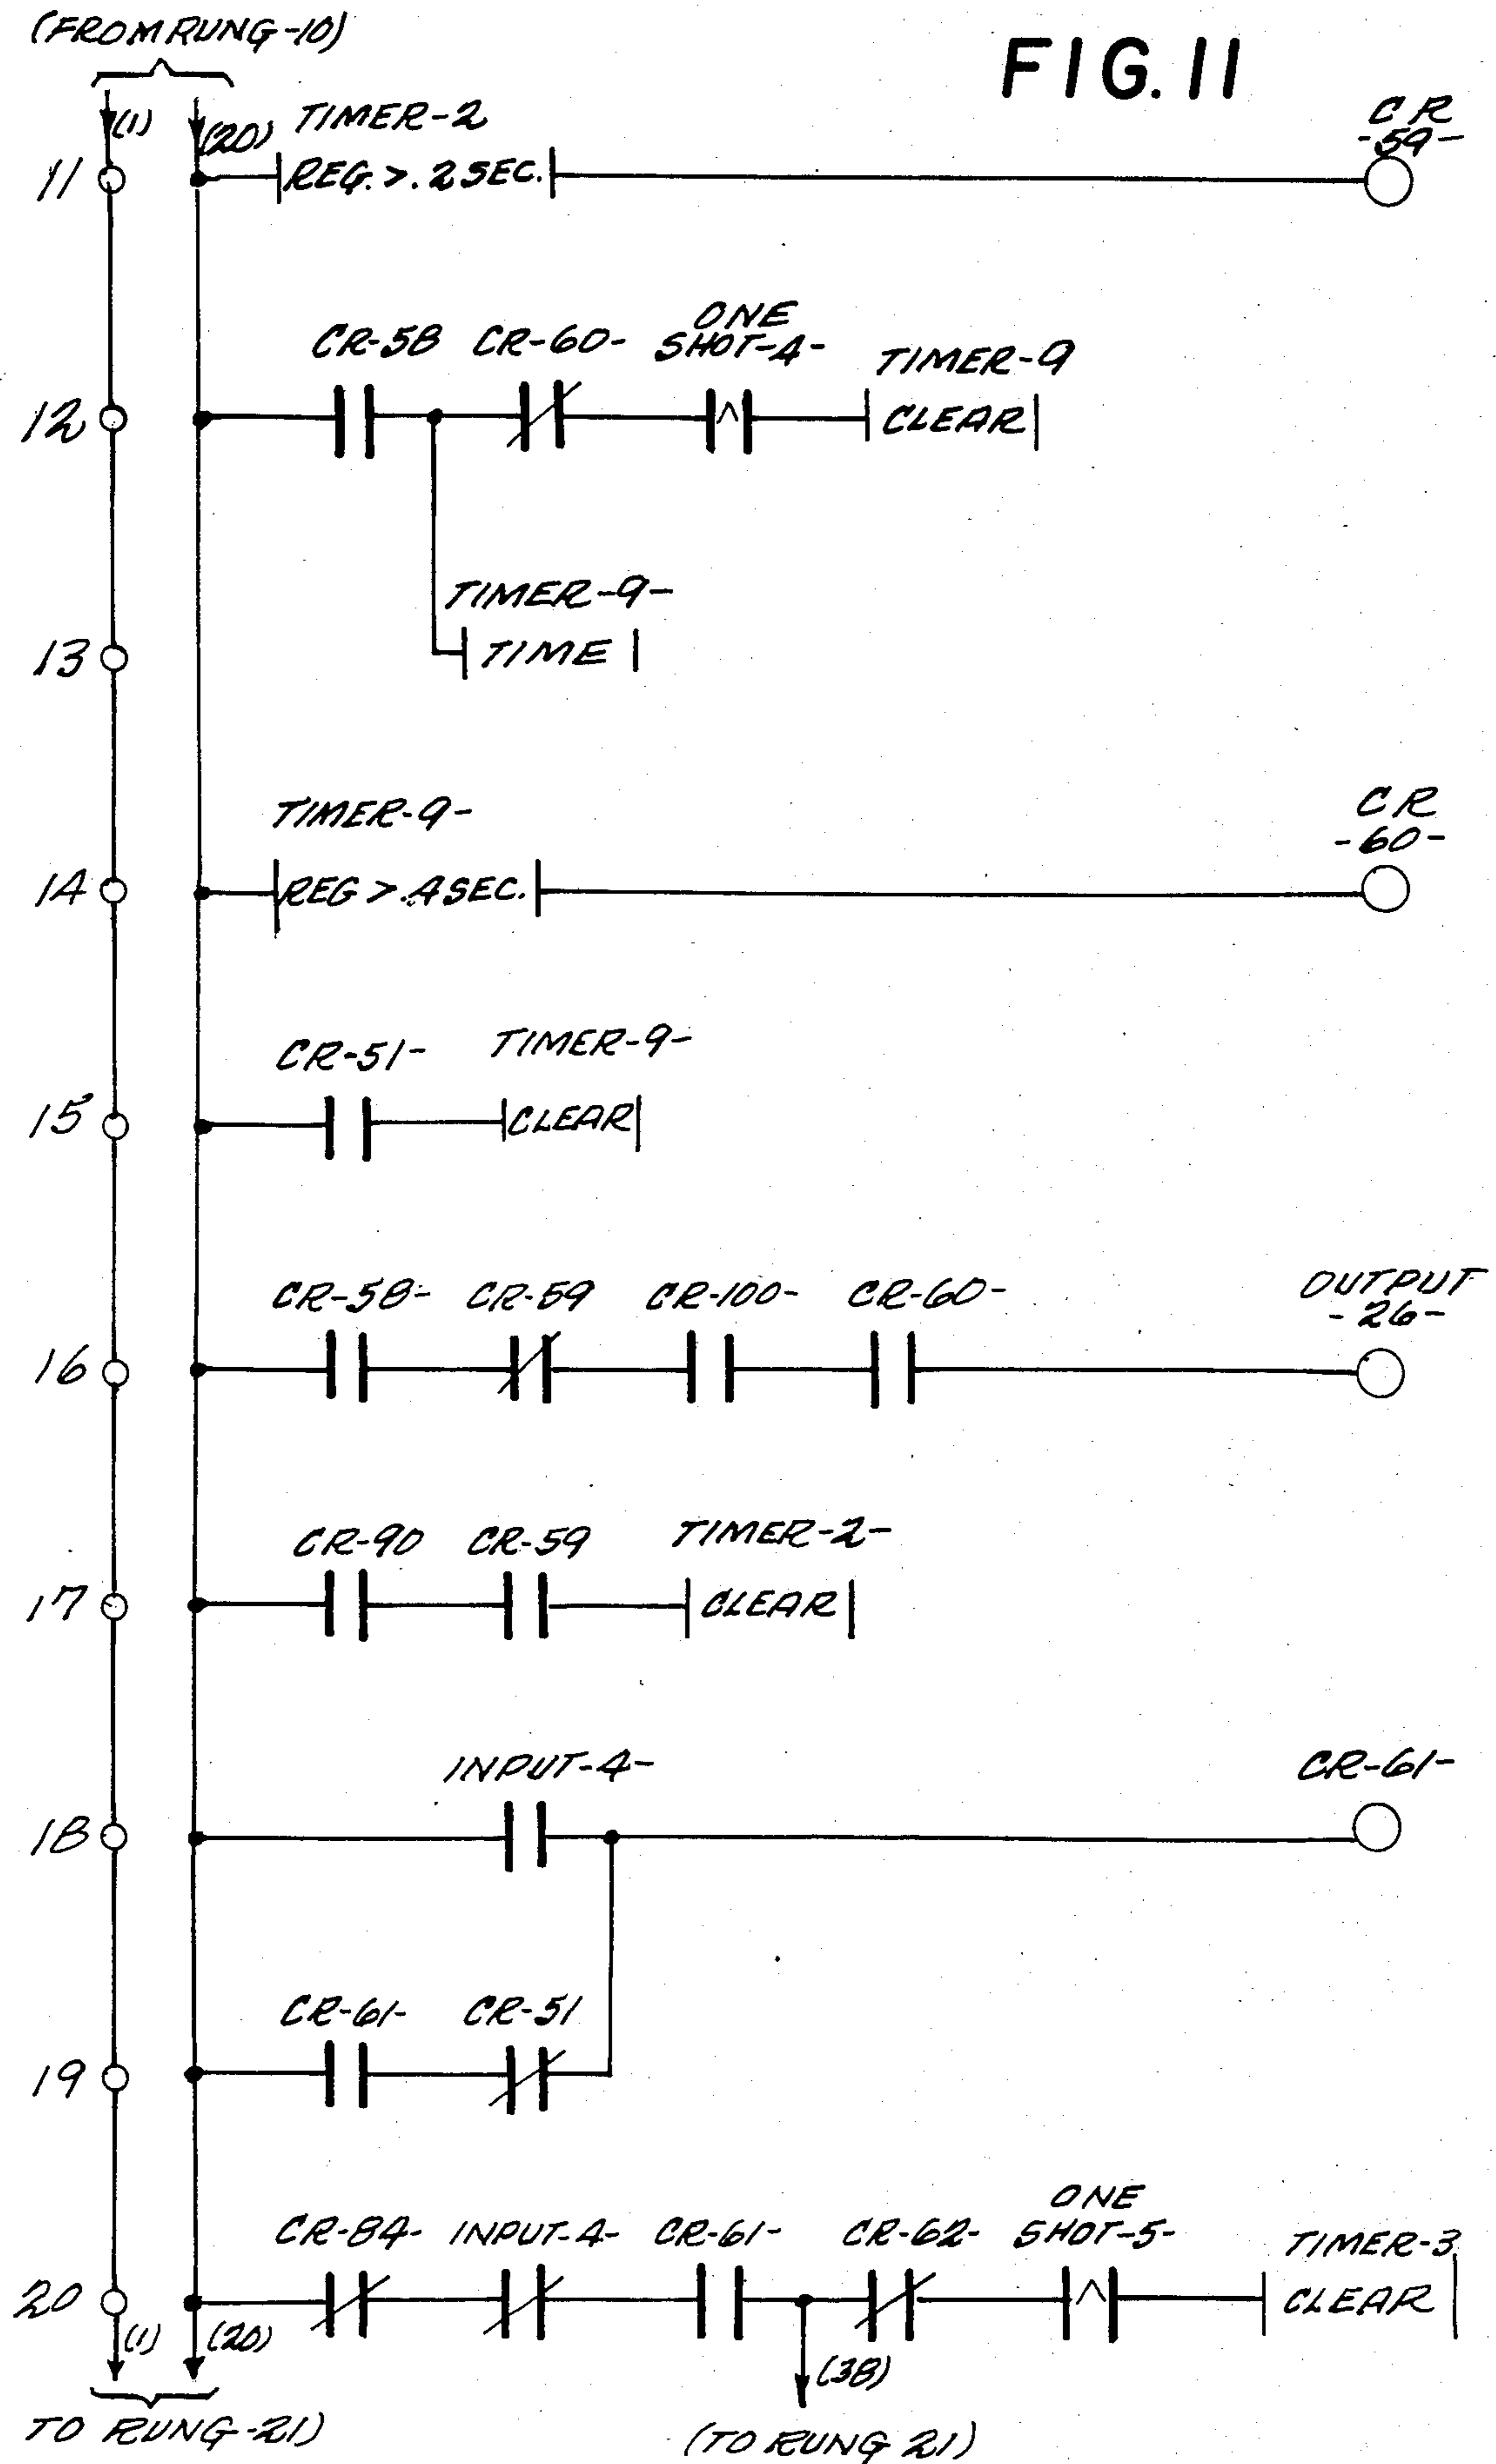 (FROM RUNG-10)
FIG. 11
(1)
(20)
TIMER-2
CR
-59-
11
REG. > .2 SEC.
CR-58
CR-60-
ONE
SHOT-4-
TIMER-9
12
CLEAR
TIMER-9-
13
TIME
TIMER-9-
CR
-60-
14
REG > .4 SEC.
CR-51-
TIMER-9-
15
CLEAR
CR-58-
CR-59
CR-100-
CR-60-
OUTPUT
-26-
16
CR-90
CR-59
TIMER-2-
17
CLEAR
INPUT-4-
CR-61-
18
CR-61-
CR-51
19
CR-84-
INPUT-4-
CR-61-
CR-62-
ONE
SHOT-5-
TIMER-3
20
^
CLEAR
(1)
(20)
(38)
TO RUNG-21)
(TO RUNG 21)